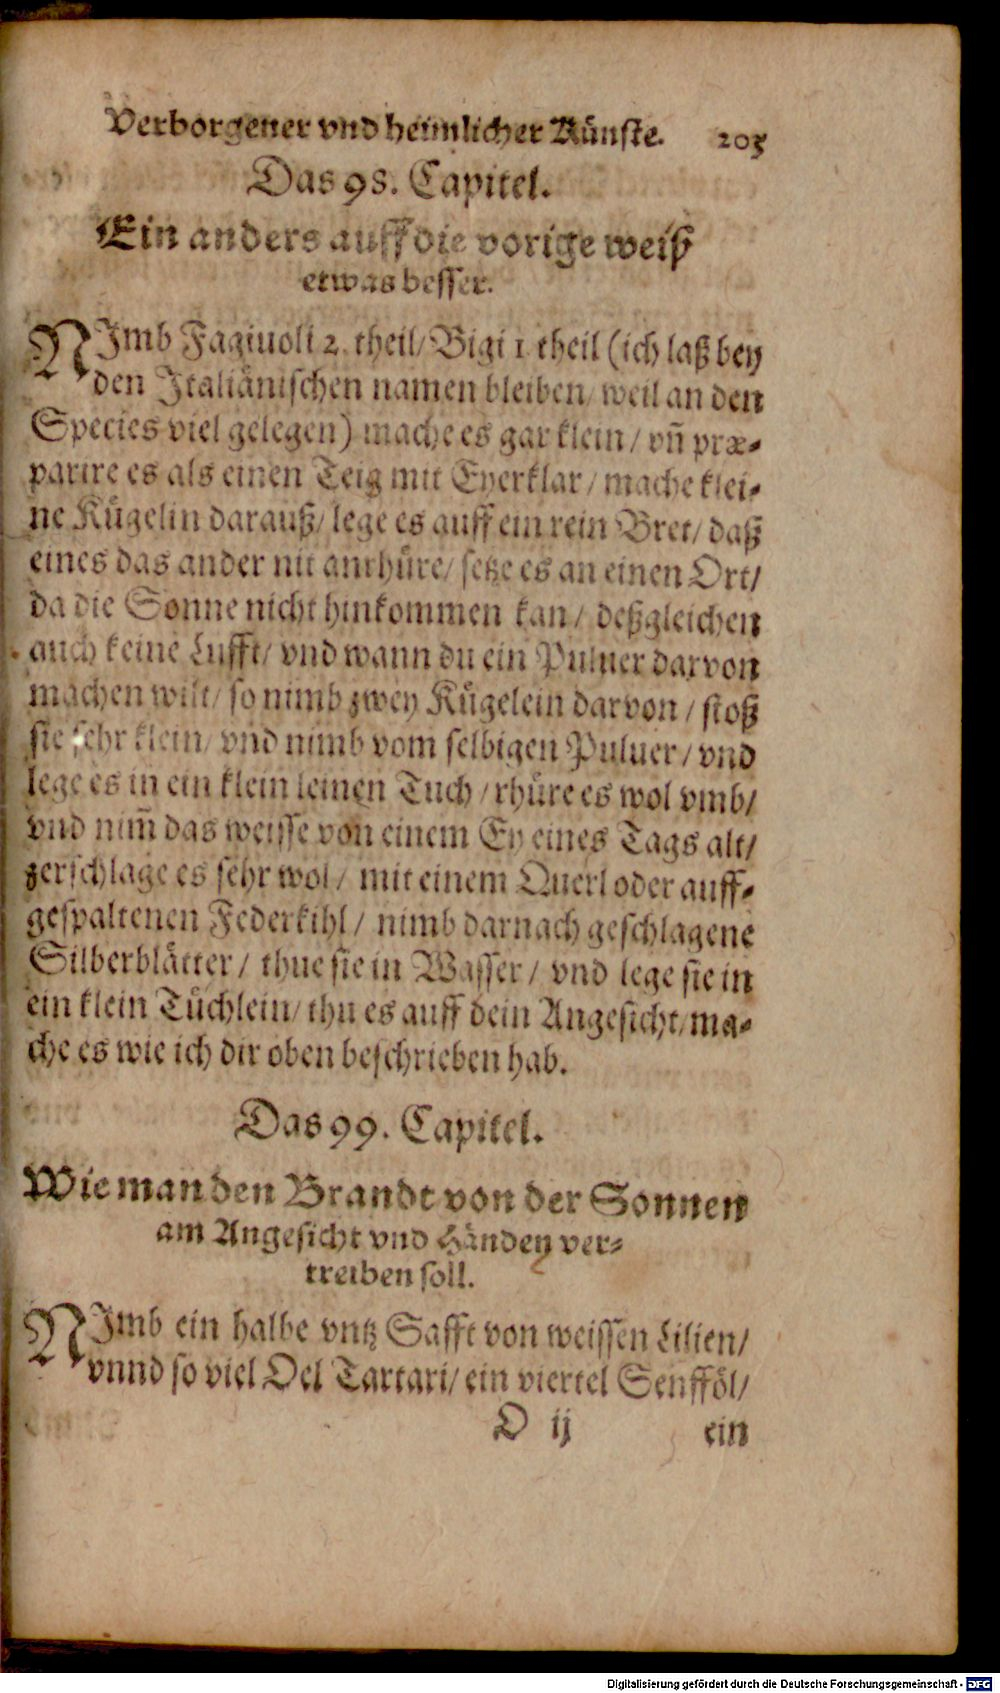 Verborgener vnd heimlicher Künste. 203
Das 98. Capitel.
Ein anders auff die vorige weiß
etwas besser.
NImb Fagiuoli 2. theil/ Bigi 1 theil (ich laß bey
den Italiänischen namen bleiben/ weil an den
Species viel gelegen) mache es gar klein/ vn̄ præ-
parire es als einen Teig mit Eyerklar/ mache klei-
ne Kügelin darauß/ lege es auff ein rein Bret/ daß
eines das ander nit anrhüre/ setze es an einen Ort/
da die Sonne nicht hinkommen kan/ deßgleichen
auch keine Lufft/ vnd wann du ein Puluer darvon
machen wilt/ so nimb zwey Kügelein darvon/ stoß
sie sehr klein/ vnd nimb vom selbigen Puluer/ vnd
lege es in ein klein leinen Tuch/ rhüre es wol vmb/
vnd nim̄ das weisse von einem Ey eines Tags alt/
zerschlage es sehr wol/ mit einem Querl oder auff-
gespaltenen Federkihl/ nimb darnach geschlagene
Silberblätter/ thue sie in Wasser/ vnd lege sie in
ein klein Tüchlein/ thu es auff dein Angesicht/ ma-
che es wie ich dir oben beschrieben hab.
Das 99. Capitel.
Wie man den Brandt von der Sonnen
am Angesicht vnd Händen ver-
treiben soll.
NImb ein halbe vntz Safft von weissen Lilien/
vnnd so viel Oel Tartari/ ein viertel Senfföl/
O ij ein
Digitalisierung gefördert durch die Deutsche Forschungsgemeinschaft - DFG